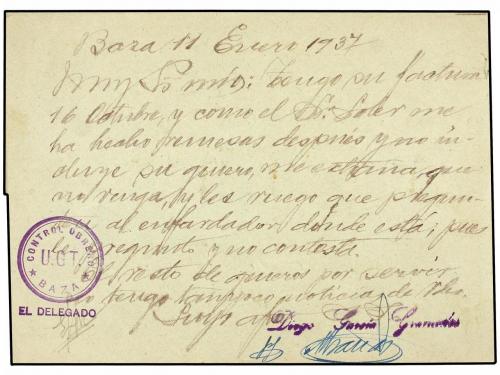 Baza 11 Enero 1937
Muy Sr mio: tengo su factura
16 Octubre, y como el Sr. Soler me
ha hecho remesas después y no in
cluye su género, me extraña que
no venga, y les ruego que pregun
al enfardador dónde está; pues
le pregunto y no contesta.
resto de géneros por servir
no tengo tampoco noticia de Vds.
Suyo
CONTROL OBRERO
U.G.T.
BAZA
EL DELEGADO
Diego García Granados